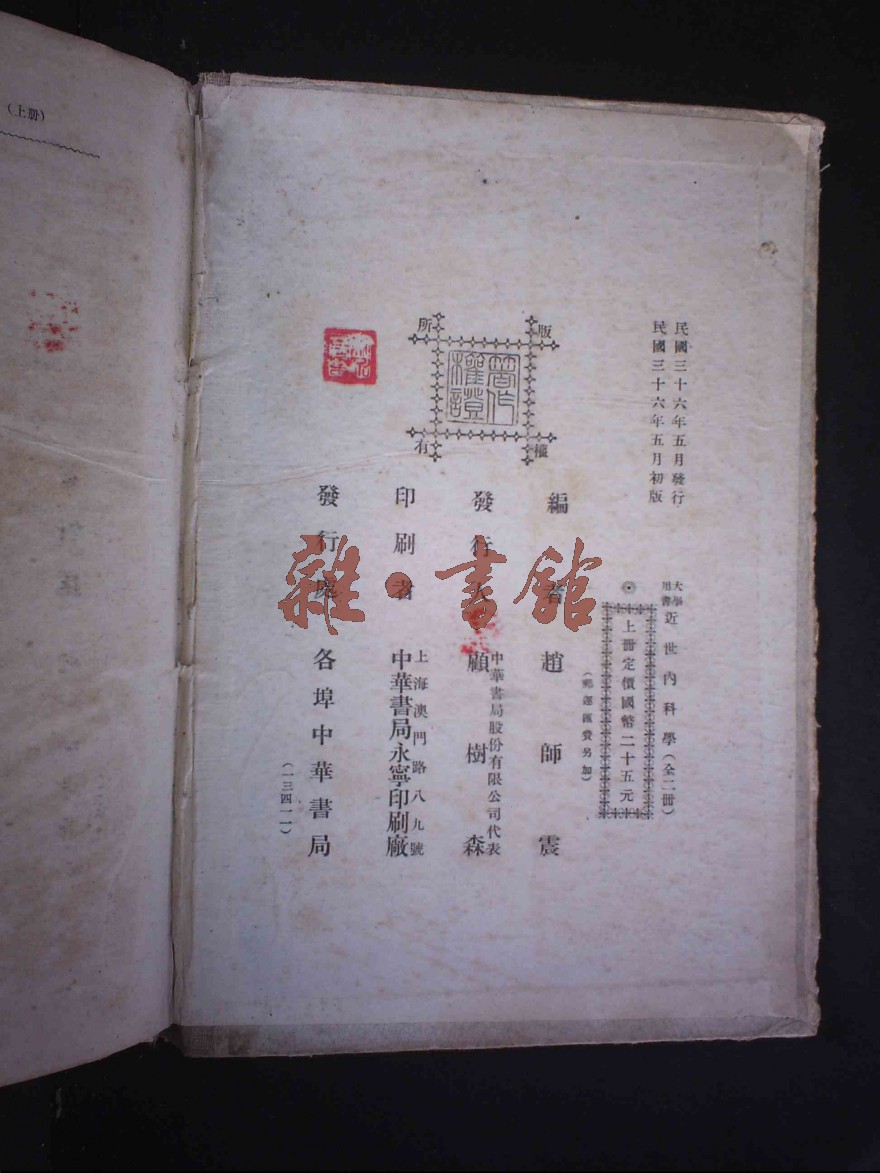 （上冊）
民國三十六年五月發行
民國三十六年五月初版
大學用書 近世內科學（全二冊）
上冊定價國幣二十五元
（郵運匯費另加）
版權所有
著作權證
編者 趙師震
發行人 中華書局股份有限公司代表 顧樹森
印刷者 上海澳門路八九號 中華書局永寧印刷廠
發行處 各埠中華書局
（一三四一一）
雜·書館